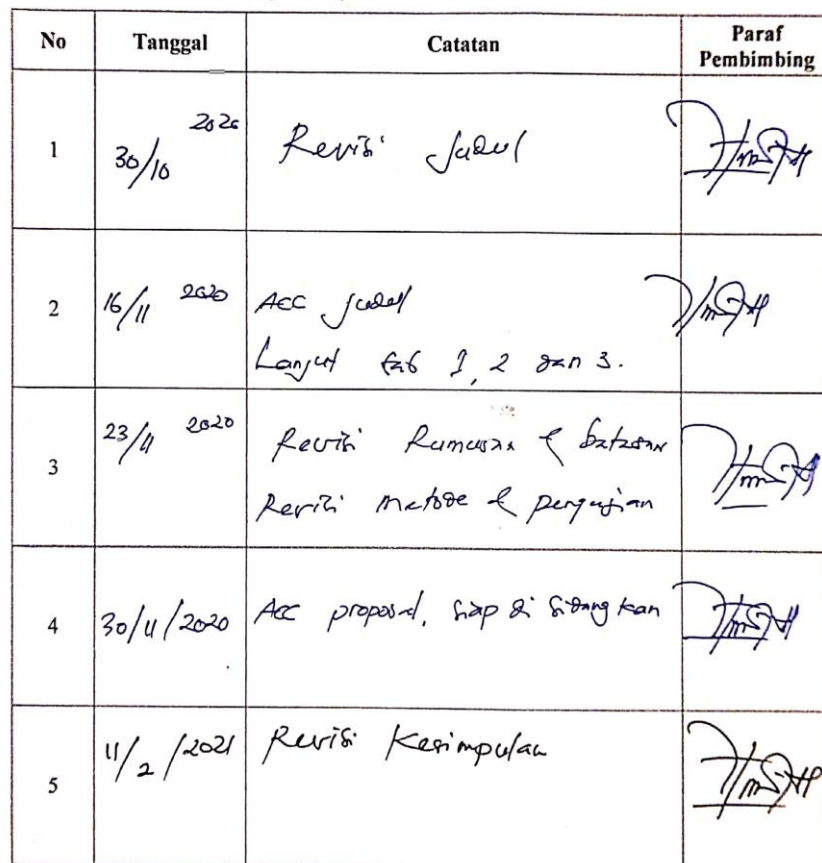 No Tanggal Catatan Paraf
Pembimbing
1 30/10 2020 Revisi Judul
2 16/11 2020 ACC Judul
Lanjut bab 1, 2 dan 3.
3 23/11 2020 Revisi Rumusan & batasan
Revisi metode & pengujian
4 30/11/2020 Acc proposal, siap di sidang kan
5 11/2/2021 Revisi Kesimpulan